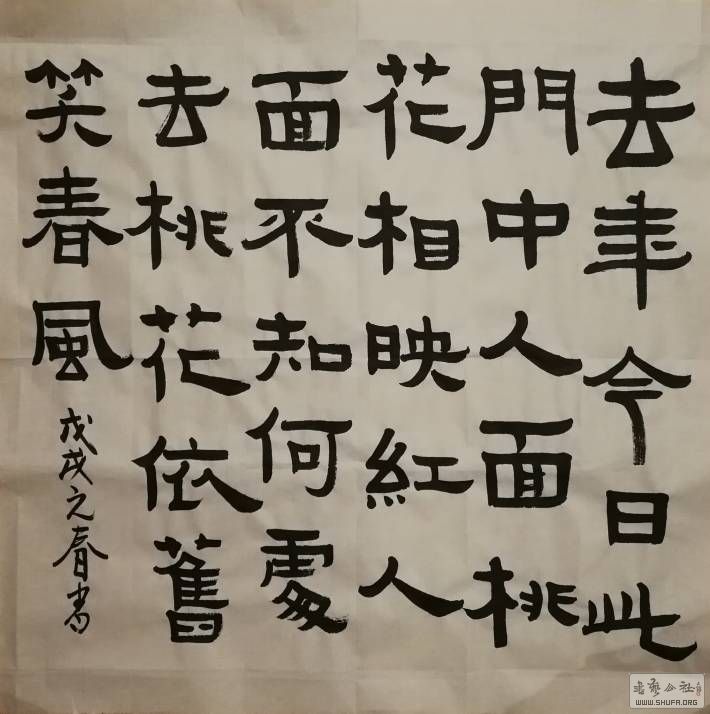 去年今日此
門中人面桃
花相映紅人
面不知何處
去桃花依舊
笑春風
戊戌之春書
書藝公社
WWW.SHUFA.ORG